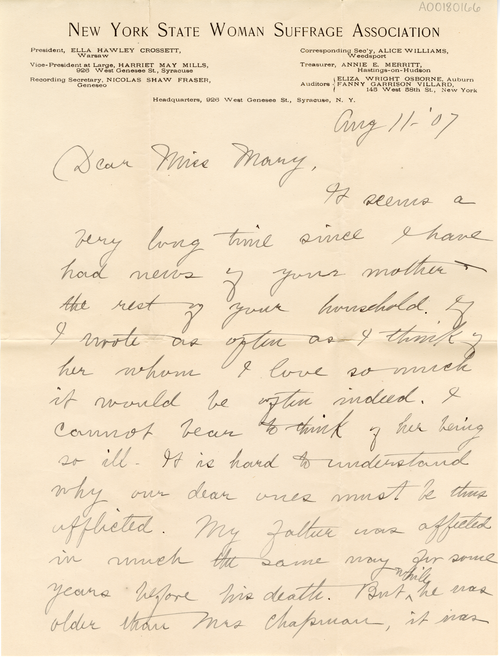 A00180166
NEW YORK STATE WOMAN SUFFRAGE ASSOCIATION
President, ELLA HAWLEY CROSSETT,
Warsaw
Vice-President at Large, HARRIET MAY MILLS,
926 West Genesee St., Syracuse
Recording Secretary, NICOLAS SHAW FRASER,
Geneseo
Corresponding Sec'y, ALICE WILLIAMS,
Weedsport
Treasurer, ANNIE E. MERRITT,
Hastings-on-Hudson
Auditors { ELIZA WRIGHT OSBORNE, Auburn
FANNY GARRISON VILLARD,
145 West 58th St., New York
Headquarters, 926 West Genesee St., Syracuse, N. Y.
Aug 11-'07
Dear Miss Mary,
It seems a
very long time since I have
had news of your mother &
the rest of your household. If
I wrote as often as I think of
her whom I love so much
it would be often indeed. I
cannot bear to think of her being
so ill. It is hard to understand
why our dear ones must be thus
afflicted. My Father was affected
in much the same way for some
years before his death. But while he was
older than Mrs Chapman, it was